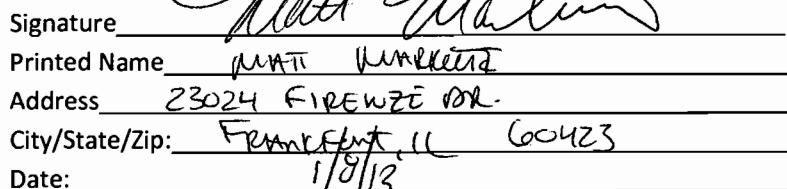 Signature Matt
Printed Name MATT
Address 23024 FIRENZE DR.
City/State/Zip: FRANKFORT, IL 60423
Date: 1/9/13